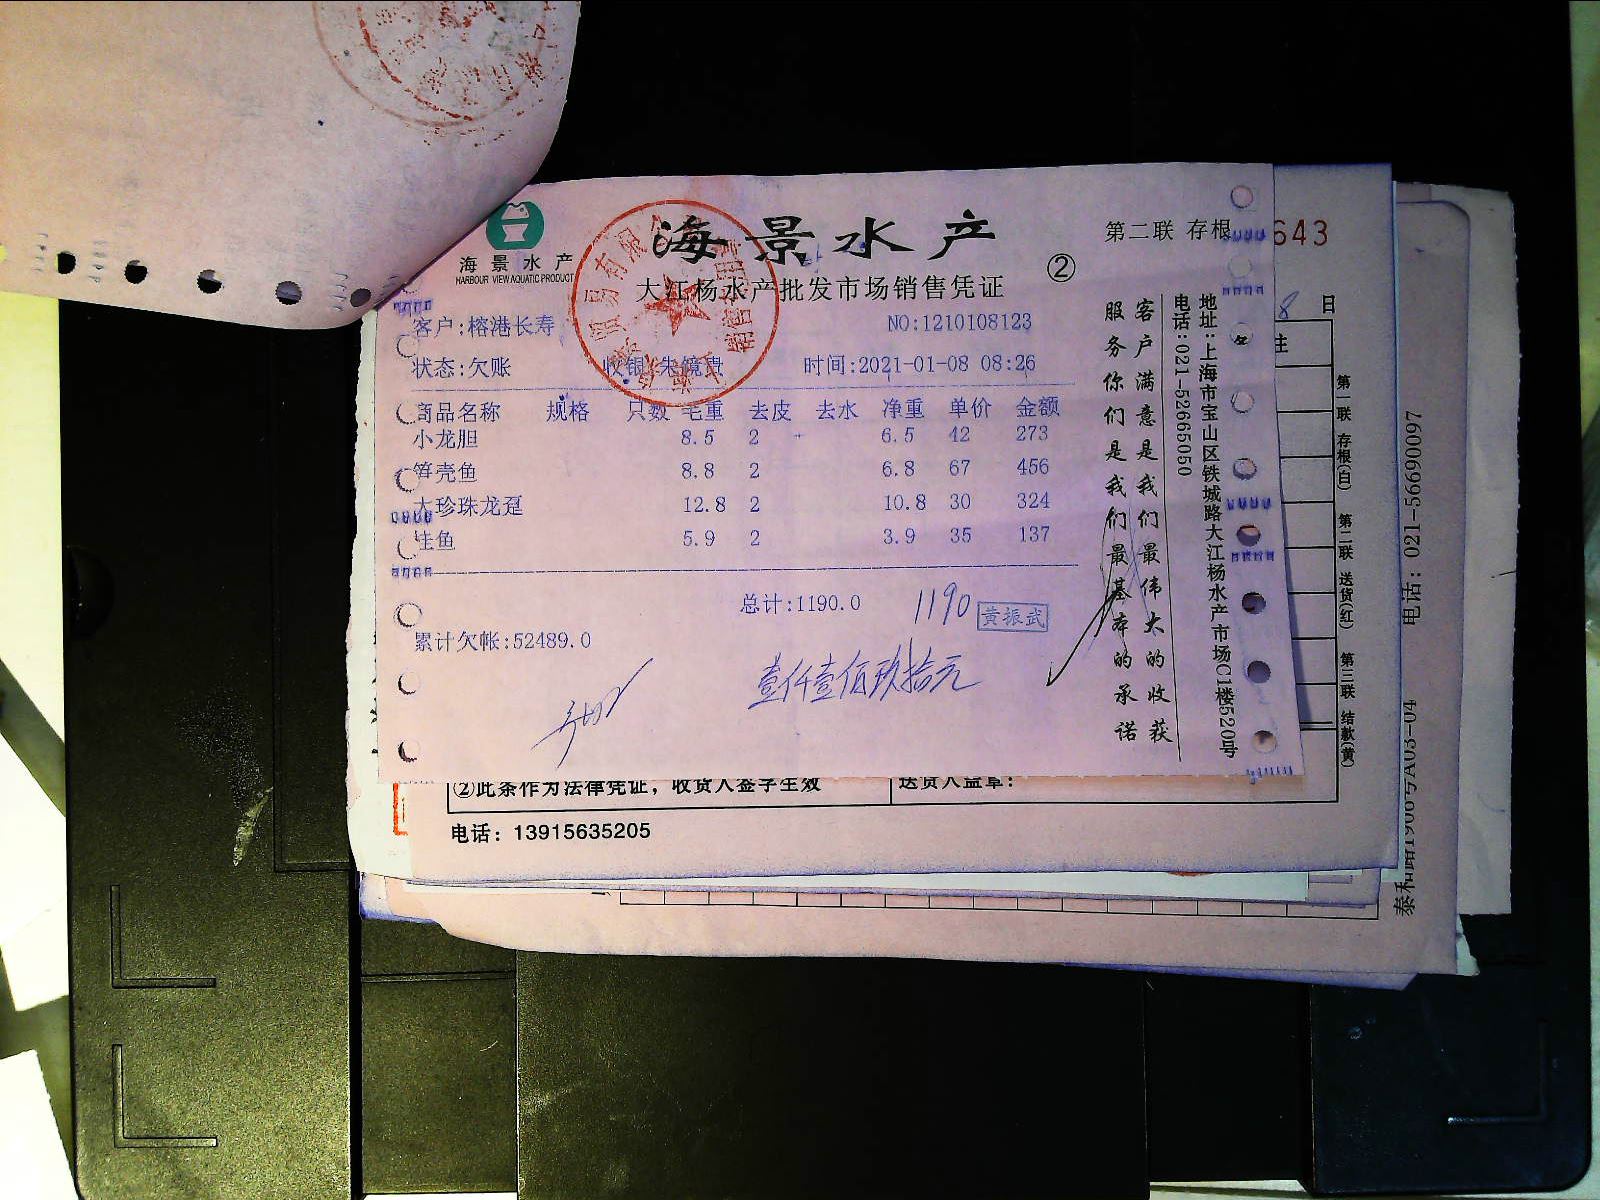 海景水产
HARBOUR VIEW AQUATIC PRODUCT
海景水产
大江杨水产批发市场销售凭证
②
第二联 存根
643
8 日
客户:榕港长寿
NO:1210108123
状态:欠账 收银:朱镜贵 时间:2021-01-08 08:26
商品名称 规格 只数 毛重 去皮 去水 净重 单价 金额
小龙胆 8.5 2 6.5 42 273
笋壳鱼 8.8 2 6.8 67 456
大珍珠龙趸 12.8 2 10.8 30 324
桂鱼 5.9 2 3.9 35 137
总计:1190.0
1190
黄振武
累计欠帐:52489.0
壹仟壹佰玖拾元
客户满意是我们最伟大的收获
服务你们是我们最基本的承诺
地址:上海市宝山区铁城路大江杨水产市场C1楼520号
电话:021-52665050
注
第一联 存根(白) 第二联 送货(红) 第三联 结款(黄)
②此条作为法律凭证，收货人签字生效
送货人盖章：
电话：13915635205
电话：021-56690097